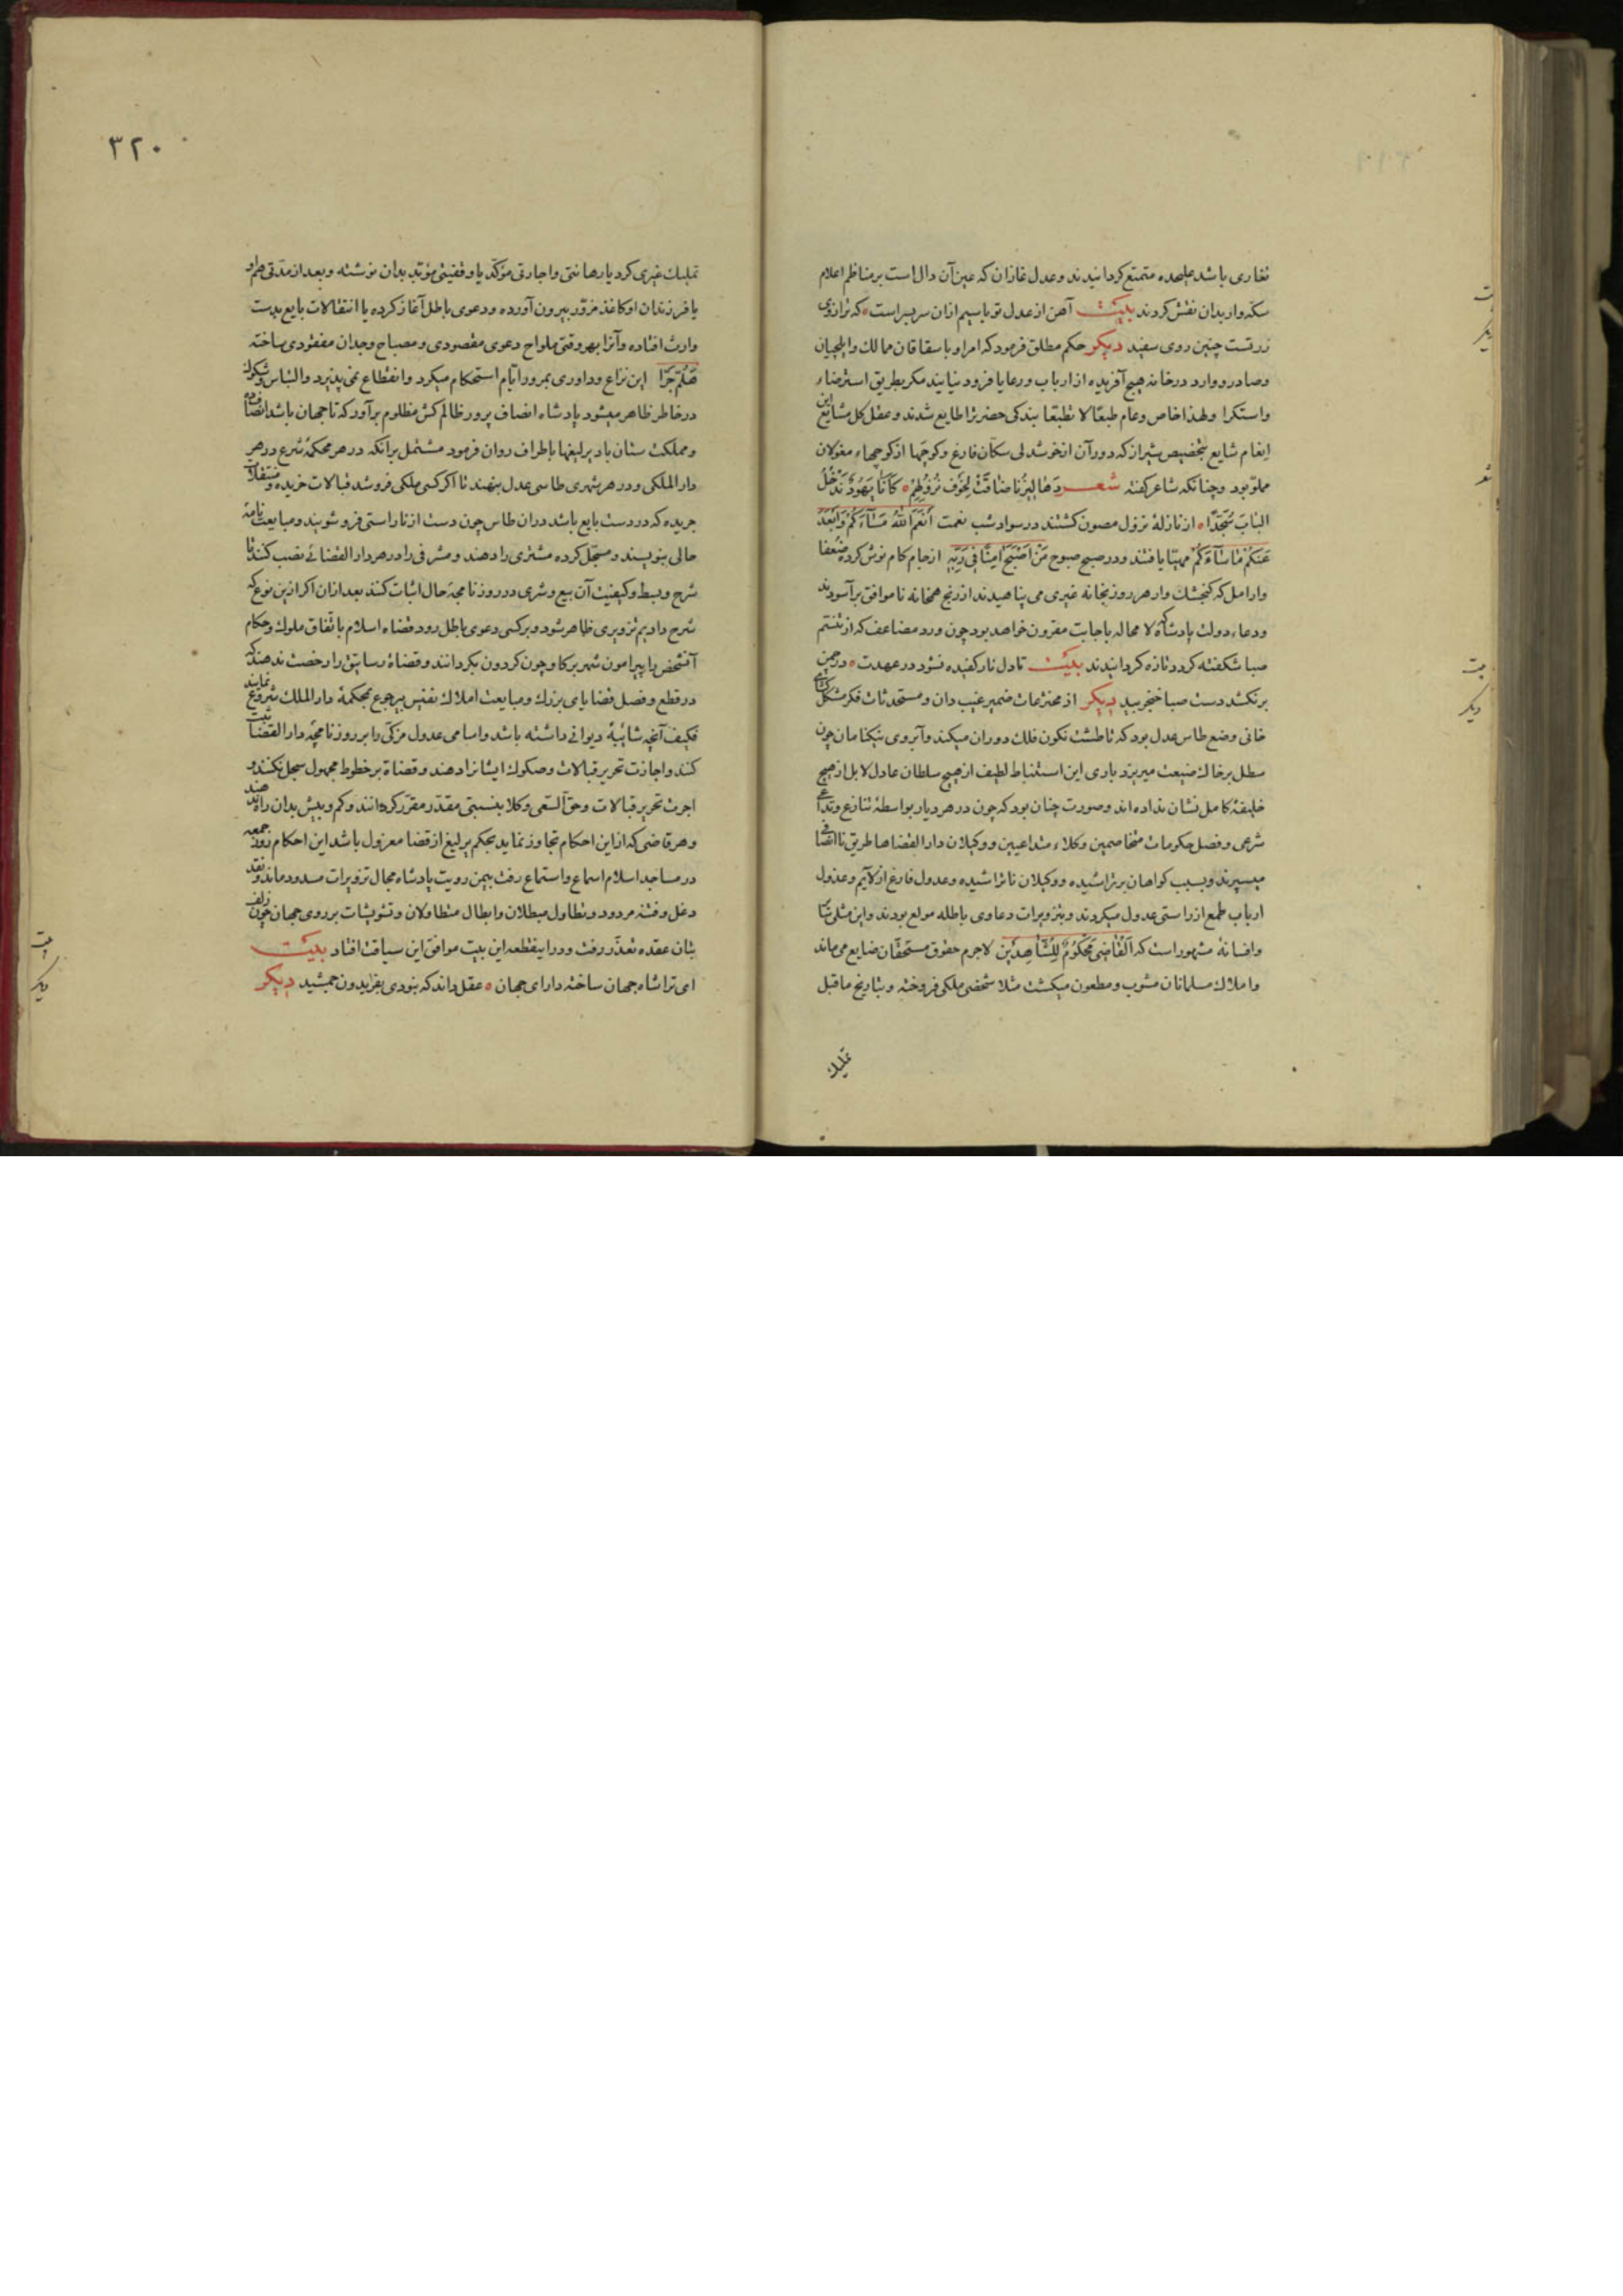 نغاری باشد علیحده متمتع کردانیدند وعدل غازان که عین آن دال است بر مناظم اعلام
سکه وار بدان نقش کردند بیت آهن از عدل تو با سیم ازان سر بسر است که ترازوی
زر تست چنین روی سفید دیکر حکم مطلق فرمود که امرا و باسقاقان ممالک وایلچیان
وصادر ووارد در خانه هیچ آفریده از ارباب ورعایا فرود نیایند مکر بطریق استرضاء
واستکرا ولهذا خاص وعام طبعًا لا تطبعا بندکی حضرتزا طایع شدند وعقل کل مشایع این
انعام شایع بتخصیص شیراز که دور آن از خوشدلی سکان فارغ وکوچها از کوچهاء مغولان
مملوّ بود وچنانکه شاعر کفته شعر دَهَالِیزُنا ضَاقَتْ لِخَوفِ نُزُولِهِمْ کَأَنَّا یَهُودٌ نَدْخُلُ
البَابَ سُجَّدًا از نازلهٔ نزول مصون کشتند در سواد شب نعمت أَنعَمَ اللّٰهُ مَسَآءَکُمْ وَأبْعَدَ
عَنکُمْ مَاسَآءَکُمْ مهیّا یافتند ودر صبح صبوح مَنْ اَصْبَحَ اٰمِنًا فِی از جام کام نوش کرده ضعفا
وارامل که کنجشک وار هر روز بخانه غیری می پناهیدند از رنج همخانه ناموافق برآسودند
ودعاء دولت پادشاه که لا محاله باجابت مقرون خواهد بود چون ورد مضاعف که از تنسّم
صبا شکفته کردد تازه کردانیدند بیت تا دل نار کفیده نشود در عهدت در چمن
بر نکشد دست صبا خنجر بید دیکر از مخترعات ضمیر غیب دان ومستحدثات فکر مشکل کشای
خانی وضع طاس عدل بود که تا طشت نکون فلک دوران میکند وآبروی نیکنامان چون
سطل بر خاک ضیعت میریزد باری این استنباط لطیف از هیچ سلطان عادل لا بل از هیچ
خلیفهٔ کامل نشان نداده اند وصورت چنان بود که چون در هر دیار بواسطهٔ تنازع وتداعی
شرعی وفصل حکومات متخاصمین وکلاء متداعیین ووکیلان دار القضاها طریق ناانصافی
میسپرند وبسبب کواهان بر تراشیده ووکیلان ناتراشیده وعدول فارغ از لایم وعذول
ارباب طمع از راستی عدول میکردند وبتزویرات دعاوی باطله مولع بودند واین مثلی
وافسانهٔ مشهور است که اَلْقَاضِی مَحْکُومٌ لِلشَّاهِدَیْنِ لاجرم حقوق مستحقان ضایع می ماند
واملاک مسلمانان مشوب ومطعون میکشت مثلا شخصی ملکی فروخته وبتاریخ ماقبل
تملیک
٣٢٠
تملیک غیری کرد یا رهانتی واجارتی مؤکّد یا وقفیتی مؤبّد بدان نوشته وبعد از مدّتی هم او
یا فرزندان او کاغذ مزوّر بیرون آورده ودعوی باطل آغاز کرده یا انتقالات بایع بدست
وارث افتاده وآنرا بهر وقتی ملواح دعوی مقصودی ومصباح وجدان مفقودی ساخته
هَلُمَّ جَرّا این نزاع وداوری بمرور ایّام استحکام میکرد وانقطاع نمی پذیرد والتباس وشکوک
در خاطر ظاهر میشود پادشاه انصاف پرور ظالم کش مظلوم برآور که تا جهان باشد انصاف ده
ومملکت ستان باد یرلیغها باطراف روان فرمود مشتمل برآنکه در هر محکمهٔ شرع ودر هر
دار الملکی ودر هر شهری طاسی عدل بنهند تا اکر کسی ملکی فروشد قبالات خریده ومنتقلات
جریده که در دست بایع باشد دران طاس چون دست از ناراستی فرو شویند ومبایعت نامه
حالی بنویسند ومسجّل کرده مشتری را دهند ومشرفی را در هر دار القضائی نصب کنند تا
شرح وبسط وکیفیت آن بیع وشری در روزنامجه حال اثبات کند بعد ازان اکر ازین نوع که
شرح دادیم تزویری ظاهر شود وبر کسی دعوی باطل رود قضاه اسلام باتفاق ملوک وحکام
آنشخص را پیرامون شهر بر کاو چون کردون بکردانند وقضاة رساتیق را رخصت ندهند که
در قطع وفصل قضایای بزرک ومبایعت املاک نفیس بیرجوع بمحکمهٔ دار الملک شروع نمایند
فکیف آنچه شائبهٔ دیوانی داشته باشد واسامی عدول مزکّی را بر روزنامجه دار القضا ثبت
کنند واجازت تحریر قبالات وصکوک ایشانرا دهند وقضاة بر خطوط مجهول سجل نکنند و
اجرت تحریر قبالات وحقّ السّعی وکلا بنسبتی مقدّر مقرّر کردانند وکم وبیش بدان راه ندهند
وهر قاضی که از این احکام تجاوز نماید بحکم یرلیغ از قضا معزول باشد این احکام روز جمعه
در مساجد اسلام اسماع واستماع رفت بیمن رویت پادشاه مجال تزویرات مسدود ماند ونقد
دغل وفتنه مردود وتطاول مبطلان وابطال متطاولان وتشویشات بر روی جهان چون زلف
بتان عقده تعذّر رفت ودرا ینقطعه این بیت موافق این سیاقت افتاد بیت
ای ترا شاه جهان ساخته دارای جهان عقل داند که بنودی بفریدون جمشید دیکر
بیت
دیکر
شعر
بیت
دیکر
بیت
دیکر